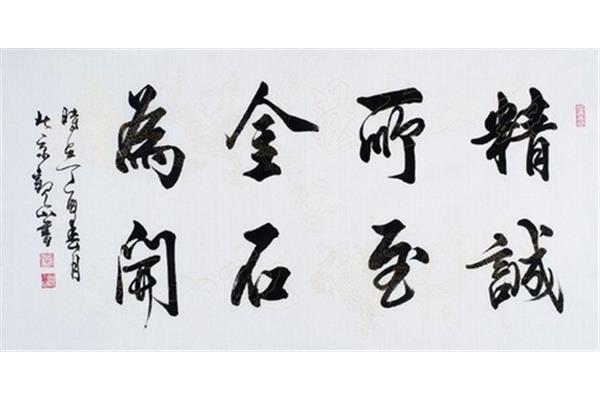 精誠
所至
金石
為開
時在丁酉春月
北京山書